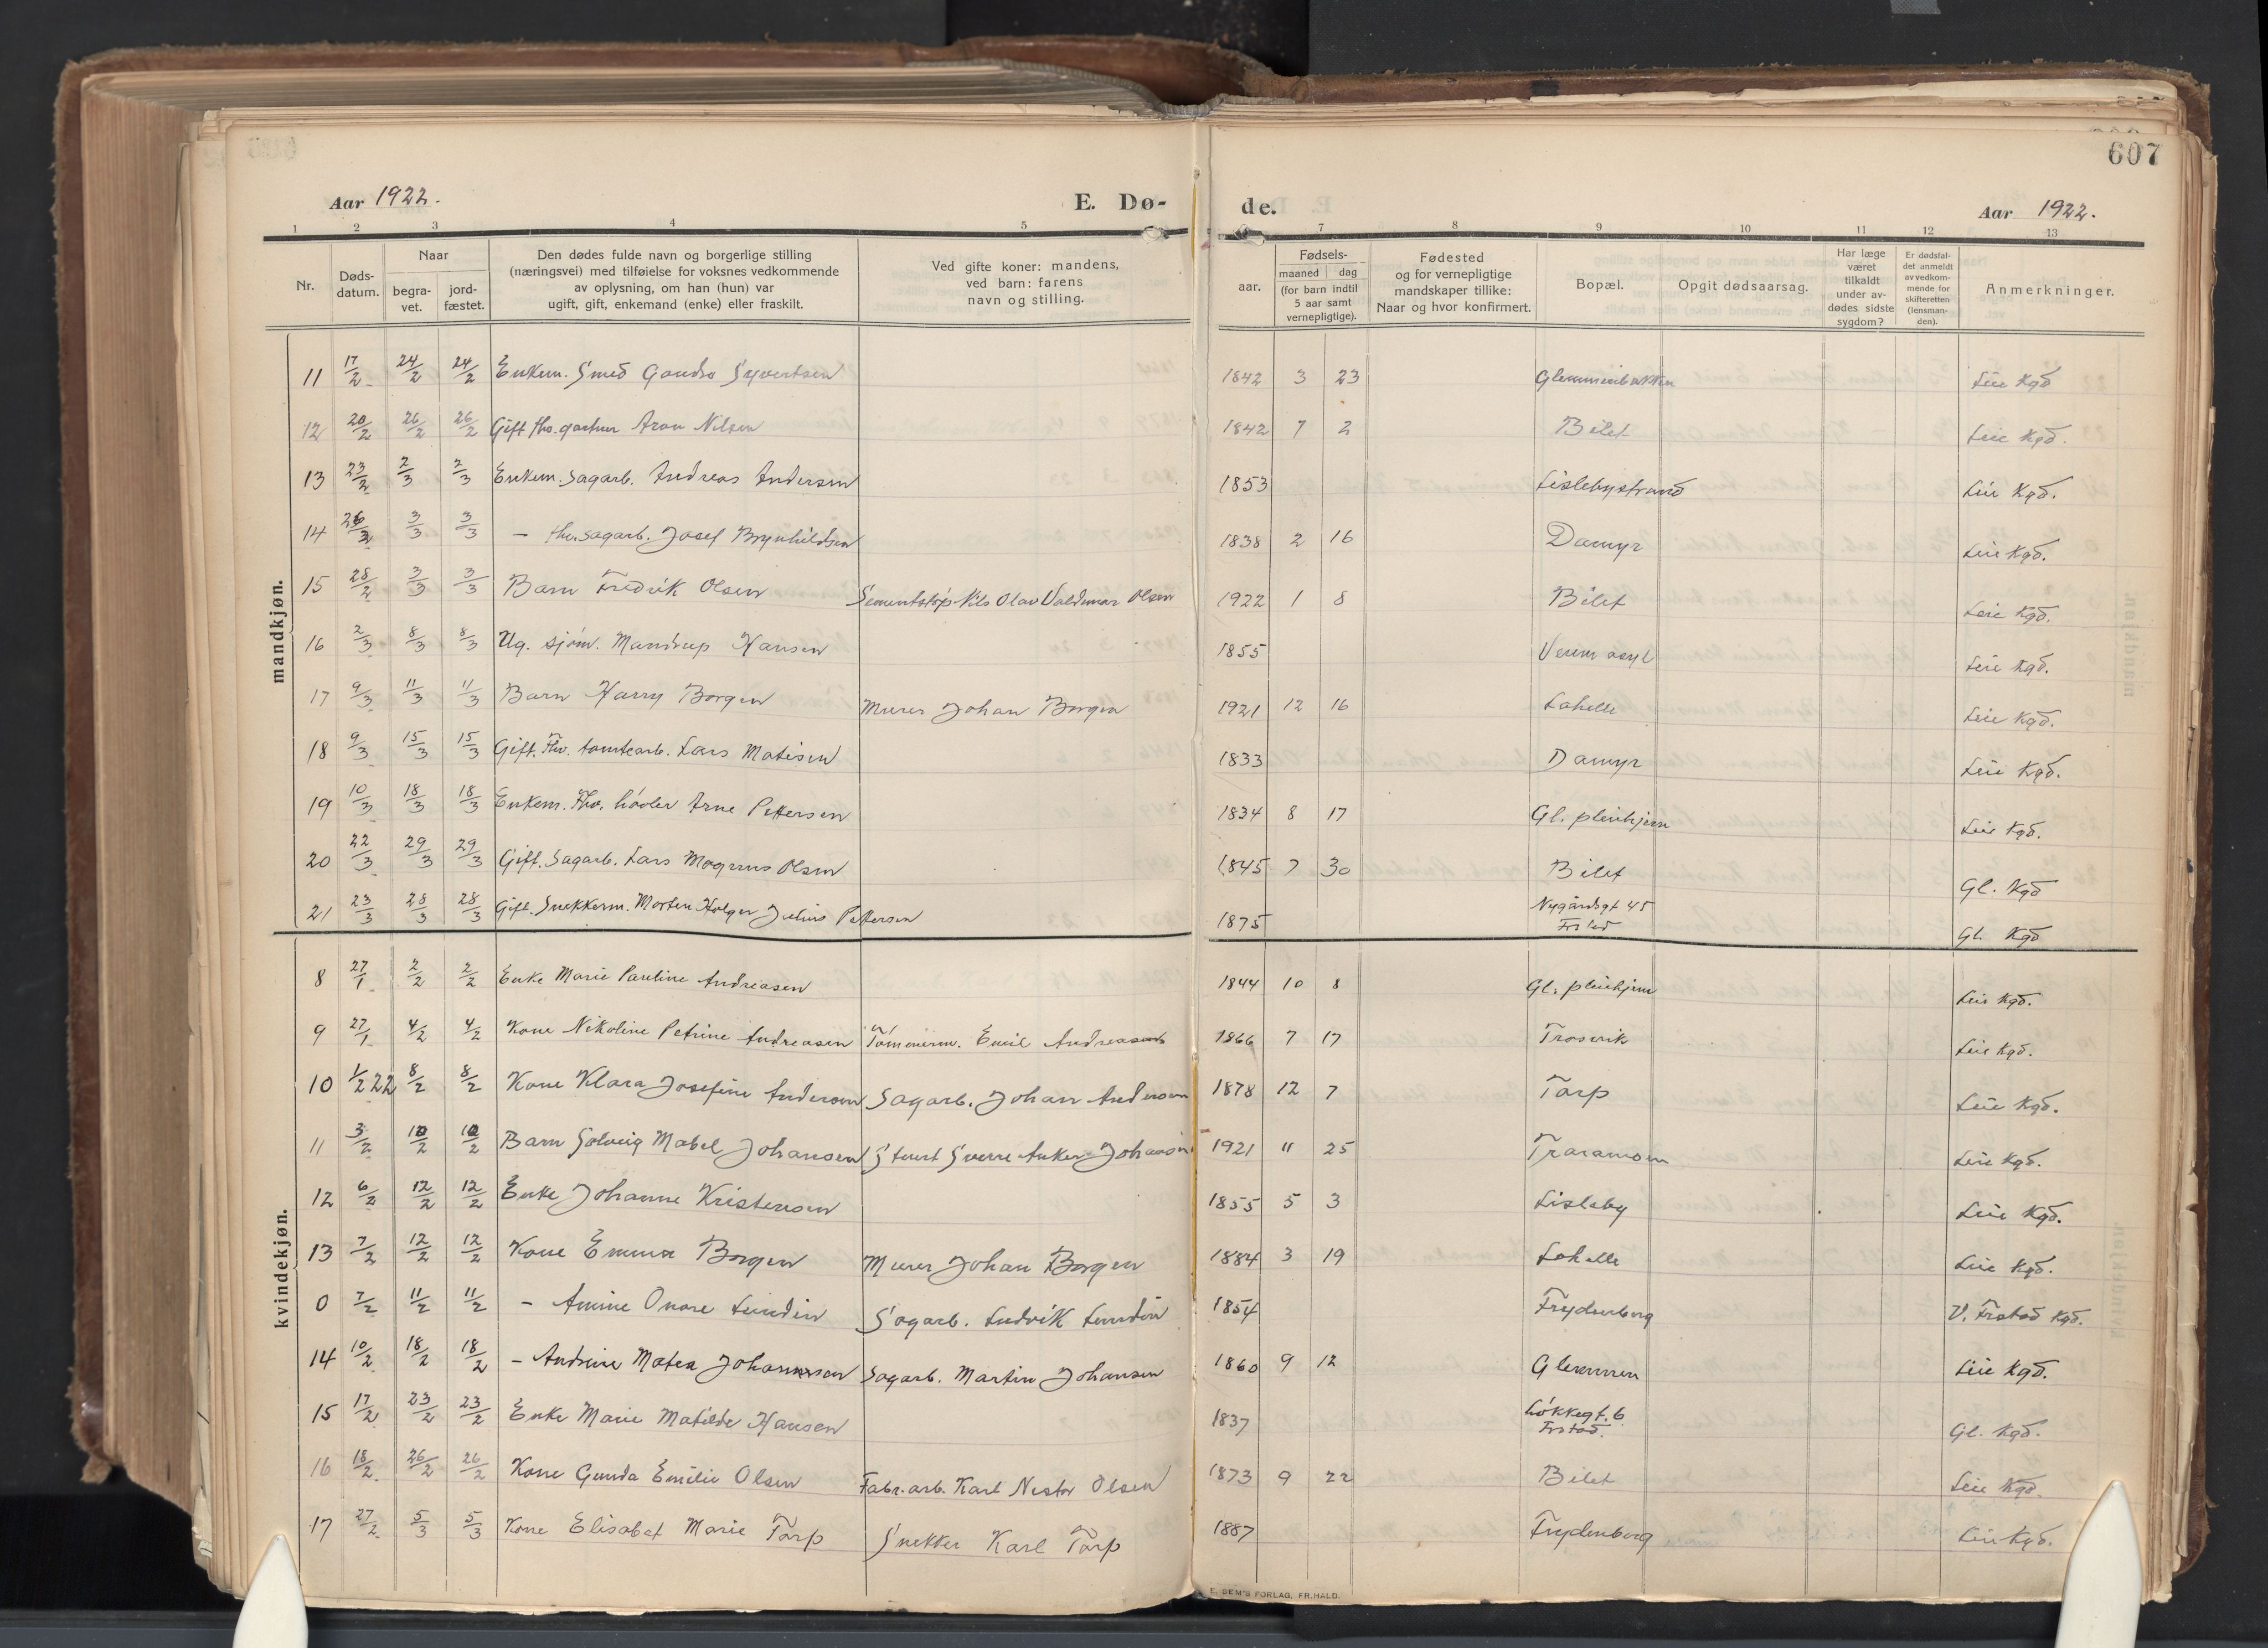 607
Aar 1922.
E. Dø-
de.
Aar 1922.
1 2 3 4 5 7 8 9 10 11 12 13
Nr.
Døds-
datum.
Naar
begra-
vet.
jord-
fæstet.
Den dødes fulde navn og borgerlige stilling
(næringsvei) med tilføielse for voksnes vedkommende
av oplysning, om han (hun) var
ugift, gift, enkemand (enke) eller fraskilt.
Ved gifte koner: mandens,
ved barn: farens
navn og stilling.
aar.
Fødsels-
maaned dag
(for barn indtil
5 aar samt
vernepligtige).
Fødested
og for vernepligtige
mandskaper tillike:
Naar og hvor konfirmert.
Bopæl.
Opgit dødsaarsag.
Har læge
været
tilkaldt
under av-
dødes sidste
sygdom?
Er dødsfal-
det anmeldt
av vedkom-
mende for
skifteretten
(lensman-
den).
Anmerkninger.
mandkjøn.
11 17/2 24/2 24/2 Enkem. Smed Syvertsen 1842 3 23 Glemmenbakken Leie Kgd
12 20/2 26/2 26/2 Gift fho. gartner Aron Nilsen 1842 7 2 Bilet Leie Kgd.
13 23/2 2/3 2/3 Enkem. Sagarb. Andreas Andersen 1853 Lislebystrand Leie Kgd.
14 3/3 3/3 — fhv. sagarb. Josef Brynhildsen 1838 2 16 Damyr Leie Kgd.
15 28/2 3/3 3/3 Barn Fredrik Olsen Sementstøp. Nils Olav Valdemar Olsen 1922 1 8 Bilet Leie Kgd.
16 2/3 8/3 8/3 Ug. sjøm. Mandrup Hansen 1855 Verum asyl Leie Kgd.
17 9/3 11/3 11/3 Barn Harry Borgen Murer Johan Borgen 1921 12 16 Lahelle Leie Kgd.
18 9/3 15/3 15/3 Gift. Fhv. tomtearb. Lars Matisen 1833 Damyr Leie Kgd.
19 10/3 18/3 18/3 Enkem. Fhv. høvler Arne Pettersen 1834 8 17 Gl. pleiehjem Leie Kgd.
20 22/3 29/3 29/3 Gift. Sagarb. Lars Magnus Olsen 1845 7 30 Bilet Gl. Kgd
21 23/3 28/3 28/3 Gift. Snekkerm. Morten Holger Julius Pettersen 1875 Nygårdsgt 45
Frstad Gl. Kgd
kvindekjøn.
8 27/1 2/2 2/2 Enke Marie Pauline Andreasen 1844 10 8 Gl. pleiehjem Leie Kgd.
9 27/1 4/2 4/2 Kone Nikoline Petrine Andreasen Tømmerm. Emil Andreasen 1866 7 17 Trosvik Leie Kgd.
10 1/2 22 8/2 8/2 Kone Klara Josefine Andersen Sagarb. Johan Andersen 1878 12 7 Torp Leie Kgd.
11 3/2 10/2 10/2 Barn Solveig Mabel Johansen Stuert Sverre Anker Johansen 1921 11 25 Traramoen Leie Kgd.
12 6/2 12/2 12/2 Enke Johanne Kristensen 1855 5 3 Lisleby Leie Kgd.
13 7/2 12/2 12/2 Kone Emma Borgen Murer Johan Borgen 1884 3 19 Lahelle Leie Kgd.
0 7/2 11/2 11/2 — Amine Onore Lundin Sagarb. Ludvik Lundin 1854 Frydenberg V. Frstad Kgd.
14 10/2 18/2 18/2 — Andrine Matea Johannsen Sagarb. Martin Johansen 1860 9 12 Glemmen Leie Kgd.
15 17/2 23/2 23/2 Enke Marie Matilde Hansen 1837 Løkkegt. 6
Frstad. Gl. Kgd.
16 18/2 26/2 26/2 Kone Gunda Emilie Olsen Fabr.arb. Karl Nestor Olsen 1873 9 22 Bilet Leie Kgd.
17 27/2 5/3 5/3 Kone Elisabet Marie Torp Snekker Karl Torp 1887 Frydenberg Leie Kgd.
E. SEM'S FORLAG, FR.HALD.